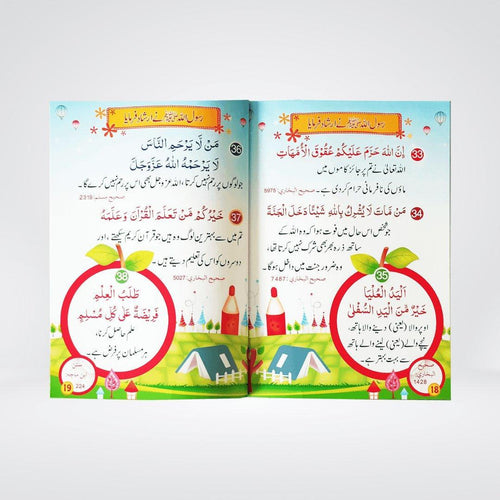 رسول اللہ ﷺ نے ارشاد فرمایا
33 إِنَّ اللهَ حَرَّمَ عَلَيْكُمْ عُقُوقَ الْأُمَّهَاتِ
اللہ تعالیٰ نے تم پر جائز کاموں میں
ماؤں کی نافرمانی حرام کر دی ہے۔ صحیح البخاری: 5975
34 مَنْ مَاتَ لَا يُشْرِكُ بِاللهِ شَيْئًا دَخَلَ الْجَنَّةَ
جو شخص اس حال میں فوت ہوا کہ وہ اللہ کے
ساتھ ذرہ بھر بھی شرک نہیں کرتا تھا،
وہ ضرور جنت میں داخل ہوگا۔ صحیح البخاری: 7487
35
اَلْيَدُ الْعُلْيَا
خَيْرٌ مِّنَ الْيَدِ السُّفْلَىٰ
اوپر والا (یعنی) دینے والا ہاتھ،
نیچے والے (یعنی) لینے والے ہاتھ
سے بہت بہتر ہے۔
صحیح
البخاری:
1428
18
رسول اللہ ﷺ نے ارشاد فرمایا
36 مَنْ لَّا يَرْحَمِ النَّاسَ
لَا يَرْحَمْهُ اللهُ عَزَّوَجَلَّ
جو لوگوں پر رحم نہیں کرتا، اللہ عزوجل بھی اس پر رحم نہیں کرے گا۔
صحیح مسلم: 2319
37 خَيْرُكُمْ مَّنْ تَعَلَّمَ الْقُرْآنَ وَعَلَّمَهُ
تم میں سے بہترین لوگ وہ ہیں جو قرآن کریم سیکھتے، اور
دوسروں کو اس کی تعلیم دیتے ہیں۔ صحیح البخاری: 5027
38
طَلَبُ الْعِلْمِ
فَرِيضَةٌ عَلَىٰ كُلِّ مُسْلِمٍ
علم حاصل کرنا،
ہر مسلمان پر فرض ہے۔
سنن
ابن ماجہ:
224
19